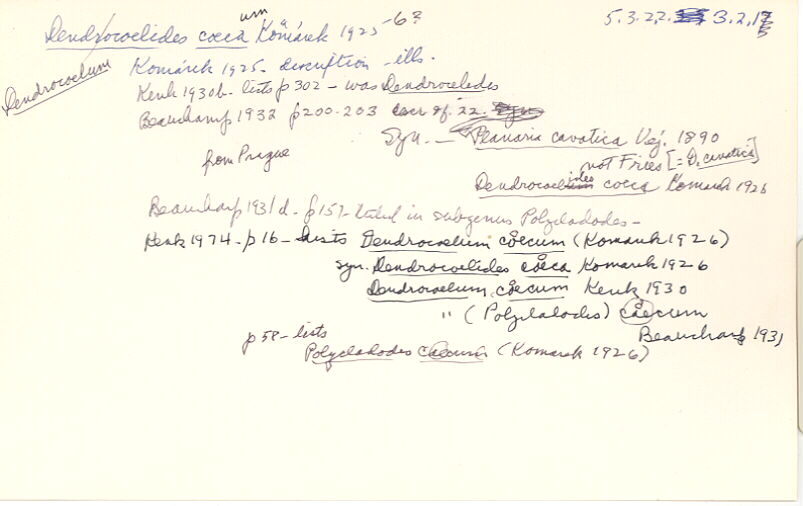 Dendrocoelides coeca um Komárek 1925-6? 5.3.22. 3.2.17
Dendrocoelum
Komárek 1925 - description - ills.
Kenk 1930b - lists p 302 - was Dendrocoelides
Beauchamp 1932 p200-203 descr sp. 22.
Syn. - Planaria cavatica Vej. 1890
from Prague not Fries [= D. cavatica]
Dendrocoelides coeca Komarek 1926
Beauchamp 1931d - p157 - listed in subgenus Polycladodes -
Kenk 1974 - p16 - Lists Dendrocoelum coecum (Komarek 1926)
syn. Dendrocoelides coeca Komarek 1926
Dendrocoelum coecum Kenk 1930
" (Polycladodes) coecum
Beauchamp 1931
p 58 - lists
Polycladodes caecum (Komarek 1926)